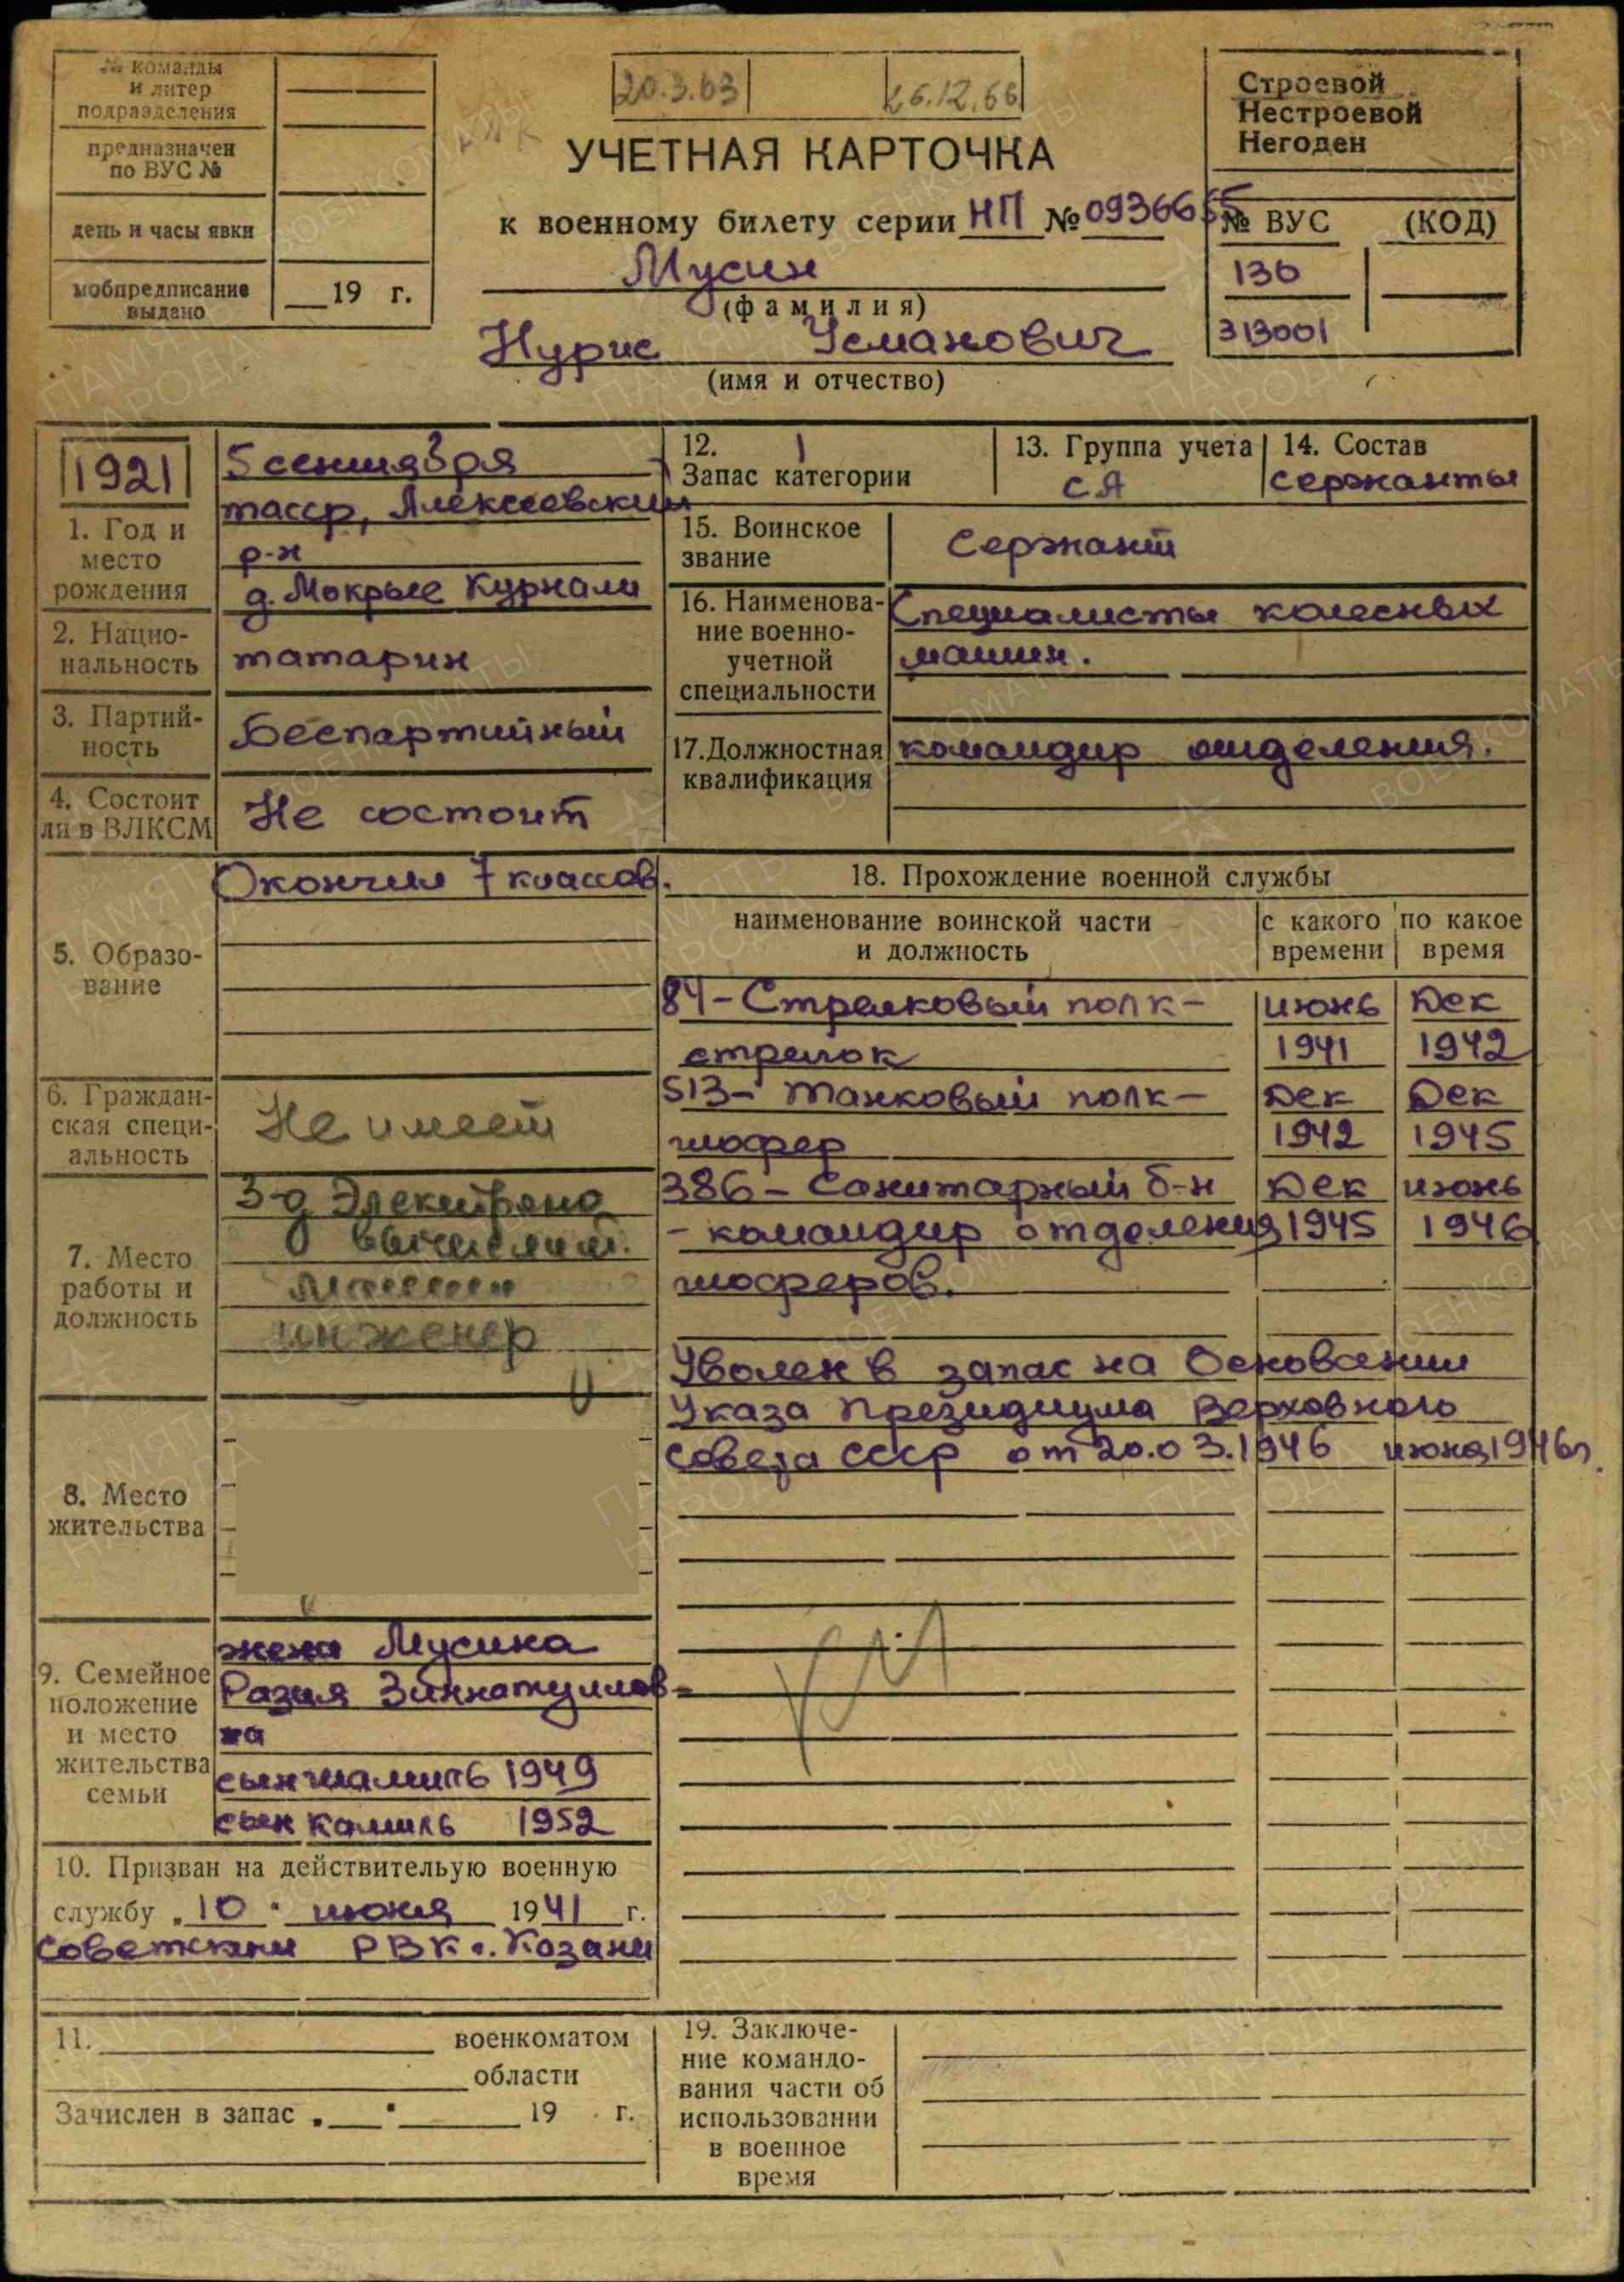 № команды
и литер
подразделения
предназначен
по ВУС №
день и часы явки
мобпредписание
выдано
19 г.
20.3.63
26.12.66
УЧЕТНАЯ КАРТОЧКА
к военному билету серии НП № 0936655
Мусин
(фамилия)
Нурис Усманович
(имя и отчество)
Строевой
Нестроевой
Негоден
№ ВУС (КОД)
136
313001
1921
1. Год и
место
рождения
5 сентября
тасср, Алексеевский
р-н
д. Мокрые Курнали
2. Нацио-
нальность
татарин
3. Партий-
ность
Беспартийный
4. Состоит
ли в ВЛКСМ
Не состоит
5. Образо-
вание
Окончил 7 классов.
6. Граждан-
ская специ-
альность
Не имеет
7. Место
работы и
должность
З-д Электронно
вычислит.
машин
инженер
8. Место
жительства
9. Семейное
положение
и место
жительства
семьи
жена Мусина
Разия Зиннатуллов-
на
сын шамиль 1949
сын камиль 1952
10. Призван на действительую военную
службу "10" июня 1941 г.
советским РВК г. Казани
11. военкоматом
области
Зачислен в запас " " 19 г.
12. 1
Запас категории
13. Группа учета
СА
14. Состав
сержанты
15. Воинское
звание
Сержант
16. Наименова-
ние военно-
учетной
специальности
Специалисты колесных
машин.
17. Должностная
квалификация
командир отделения.
18. Прохождение военной службы
наименование воинской части
и должность
с какого
времени
по какое
время
84 - Стрелковый полк -
стрелок
июнь
1941
Дек
1942
513 - танковый полк -
шофер
Дек
1942
Дек
1945
386 - Санитарный б-н
- командир отделения
шоферов.
Дек
1945
июнь
1946
Уволен в запас на Основании
Указа Президиума Верховного
Совета СССР от 20.03.1946 июня 1946г.
19. Заключе-
ние командо-
вания части об
использовании
в военное
время
ПАМЯТЬ НАРОДА
ВОЕНКОМАТЫ